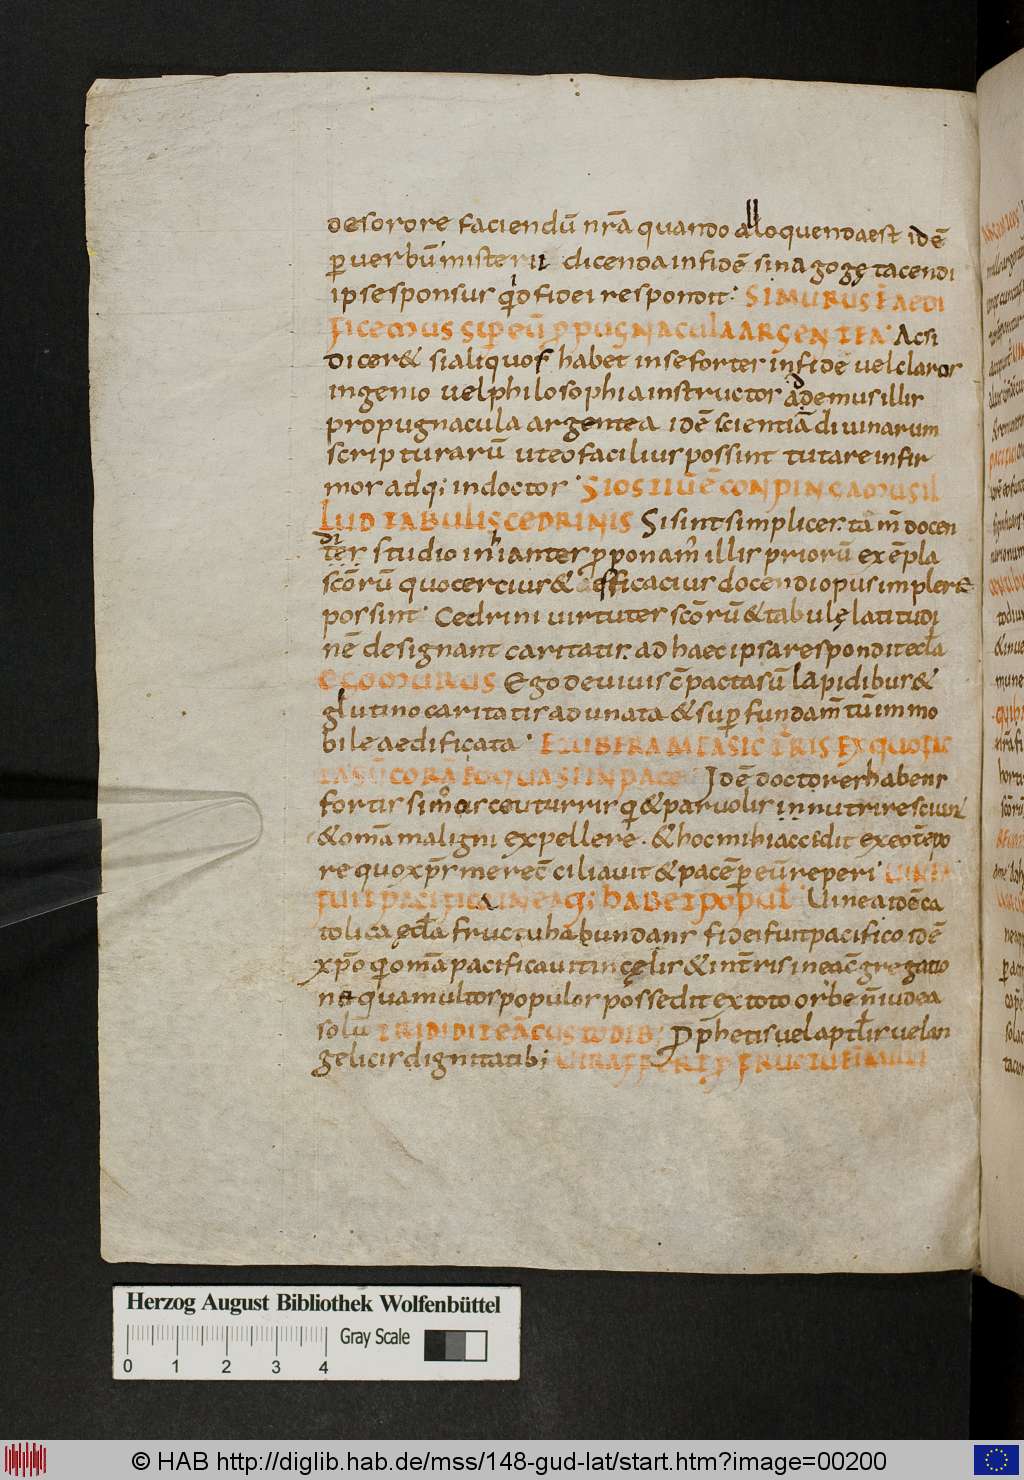 de sorore faciendū nr̄a quando alloquenda est idē
p̱ uerbū misterii dicenda in fidē sinagogę tacendi
ipse sponsus qd fidei respondit. SI MURUS Ē AEDI
FICEMUS SUP EŪ PROPUGNACULA ARGENTEA. Acsi
diceret si aliquos habet in se fortes in fidē uel claros
ingenio uel philosophia instructos addemus illis
propugnacula argentea idē scientiā diuinarum
scripturarū ut eo facilius possint tutare infir
mos adq; indoctos. SI OSTIUM Ē CONPINGAMUS IL
LUD TABULIS CEDRINIS Si sint simplices tam̄ docen
di
tes studio inhiantes proponam illis priorū exēpla
scōrū quo certius & efficacius docendi opus implere
possint. Cedrini uirtutes scōrū & tabulę latitudi
nē designant caritatis. ad haec ipsa respondit eccla
EGO MURUS Ego de uiuis cōpacta sū lapidibus &
glutino caritatis adunata & sup fundamtum immo
bile aedificata. ET UBERA MEA SIC TURRIS EX QUO FAC
TA SŪ CORĀ EO QUASI IN PACE Idē doctores habens
fortissimos ceu turris qui & paruolis innutrire sciunt
& omā maligni expellere. & hoc mihi accedit ex eo tēpo
re quo xp̄s me reconciliauit & pacē p̱ eū reperi. UINEA
FUIT PACIFICA IN EA Q; HABET POPUL Uinea idē ca
tolica ęccla fructu habundans fidei fuit pacifico idē
xp̄o qui omā pacificauit in cęlis & in terris in ea cōgregatio
ne qua multos populos possedit ex toto orbe n̄ iudea
solū TRADIDIT EĀ CUSTODIB; Prophetis uel aptlis uel an
gelicis dignitatib; UIR AFFERT P FRUCTU EI MILLE
Herzog August Bibliothek Wolfenbüttel
Gray Scale
0 1 2 3 4
© HAB http://diglib.hab.de/mss/148-gud-lat/start.htm?image=00200